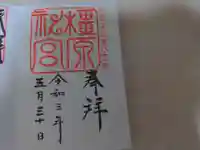 奉拝
橿原
神宮
令和三年
五月三十日